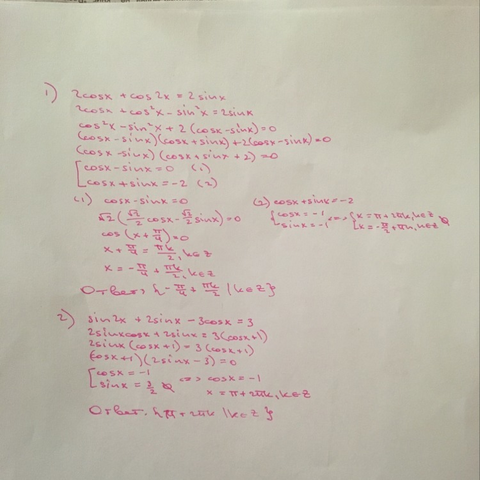 1) 2cosx + cos2x = 2sinx
2cosx + cos²x - sin²x = 2sinx
cos²x - sin²x + 2(cosx - sinx) = 0
(cosx - sinx)(cosx + sinx) + 2(cosx - sinx) = 0
(cosx - sinx)(cosx + sinx + 2) = 0
[cosx - sinx = 0 (1)
cosx + sinx = -2 (2)
(1) cosx - sinx = 0
√2(√2/2 cosx - √2/2 sinx) = 0
cos(x + π/4) = 0
x + π/4 = πk/2, k∈Z
x = -π/4 + πk/2, k∈Z
(2) cosx + sinx = -2
{cosx = -1 <=> {x = π + 2πk, k∈Z
sinx = -1 x = -π/2 + πn, k∈Z
Ответ: {-π/4 + πk/2 | k∈Z}
2) sin2x + 2sinx - 3cosx = 3
2sinxcosx + 2sinx = 3(cosx+1)
2sinx(cosx+1) = 3(cosx+1)
(cosx+1)(2sinx - 3) = 0
[cosx = -1 <=> cosx = -1
sinx = 3/2 x = π + 2πk, k∈Z
Ответ: {π + 2πk | k∈Z}